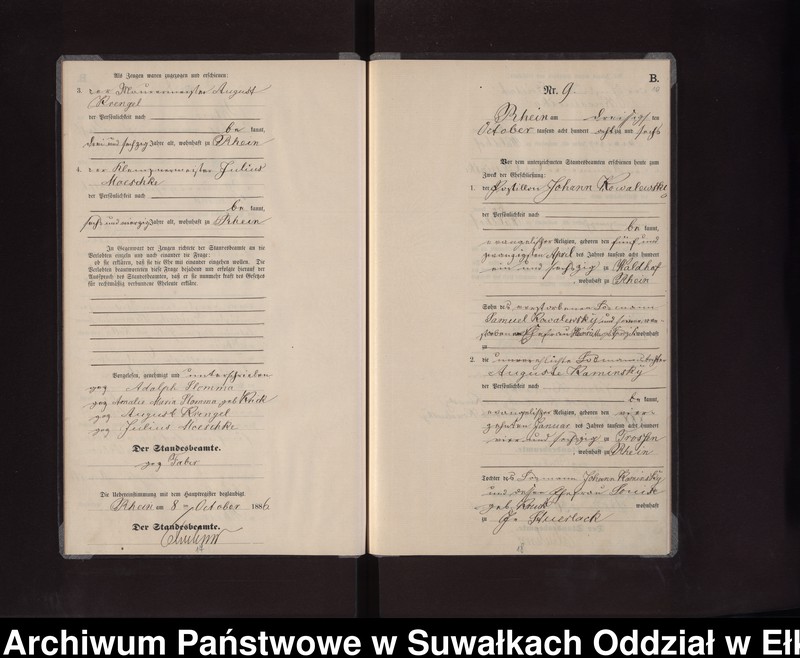 Als Zeugen waren zugezogen und erschienen:
3. der Maurermeister August
Krengel
der Persönlichkeit nach
be kannt,
drei und sechzig Jahre alt, wohnhaft zu Rhein
4. der Klempnermeister Julius
Moeschke
der Persönlichkeit nach
be kannt,
sechs und vierzig Jahre alt, wohnhaft zu Rhein
In Gegenwart der Zeugen richtete der Standesbeamte an die
Verlobten einzeln und nach einander die Frage:
ob sie erklären, daß sie die Ehe mit einander eingehen wollen. Die
Verlobten beantworteten diese Frage bejahend und erfolgte hierauf der
Ausspruch des Standesbeamten, daß er sie nunmehr kraft des Gesetzes
für rechtmäßig verbundene Eheleute erkläre.
Vorgelesen, genehmigt und unterschrieben
gez Adolph
gez Amalie Maria geb
gez August Krengel
gez Julius Moeschke
Der Standesbeamte.
gez Faber
Die Uebereinstimmung mit dem Hauptregister beglaubigt
Rhein am 8 October 1886
Der Standesbeamte.
B.
Nr. 9.
Rhein am dreißigsten
October tausend acht hundert achtzig und sechs
Vor dem unterzeichneten Standesbeamten erschienen heute zum
Zweck der Eheschließung:
1. der Postillon Johann Kowalewski
der Persönlichkeit nach
be kannt,
evangelischer Religion, geboren den fünf und
zwanzigsten April des Jahres tausend acht hundert
ein und sechszig zu Waldhof
, wohnhaft zu Rhein
Sohn des verstorbenen Losmann
Samuel Kowalewsky und seiner ver-
storbenen Ehefrau wohnhaft
zu
2. die unverehelichte Losmannstochter
Auguste Kaminsky
der Persönlichkeit nach
be kannt,
evangelischer Religion, geboren den vier-
zehnten Januar des Jahres tausend acht hundert
vier und sechszig zu Brossen
, wohnhaft zu Rhein
Tochter des Losmann Johann Kaminsky
und dessen Ehefrau Louise
geb. wohnhaft
zu Gr. Stuerlack
Archiwum Państwowe w Suwałkach Oddział w Ełk